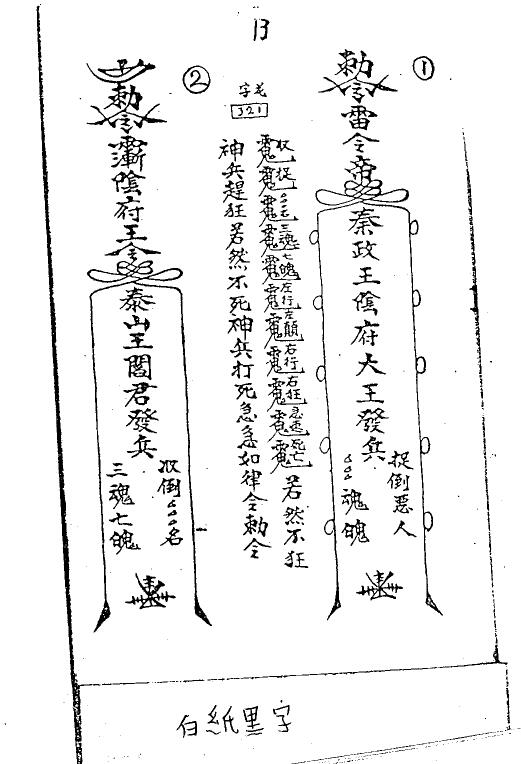 13
①
勅令雷令帝
秦政王陰府大王發兵
捉倒惡人
魂魄
321
收捉
三魂七魄左行左顛右行右狂急速死亡
若然不狂
神兵趕狂若然不死神兵打死急急如律令勅令
②
勅令
陰府王令
泰山王閻君發兵
收倒
名
三魂七魄
白紙黑字